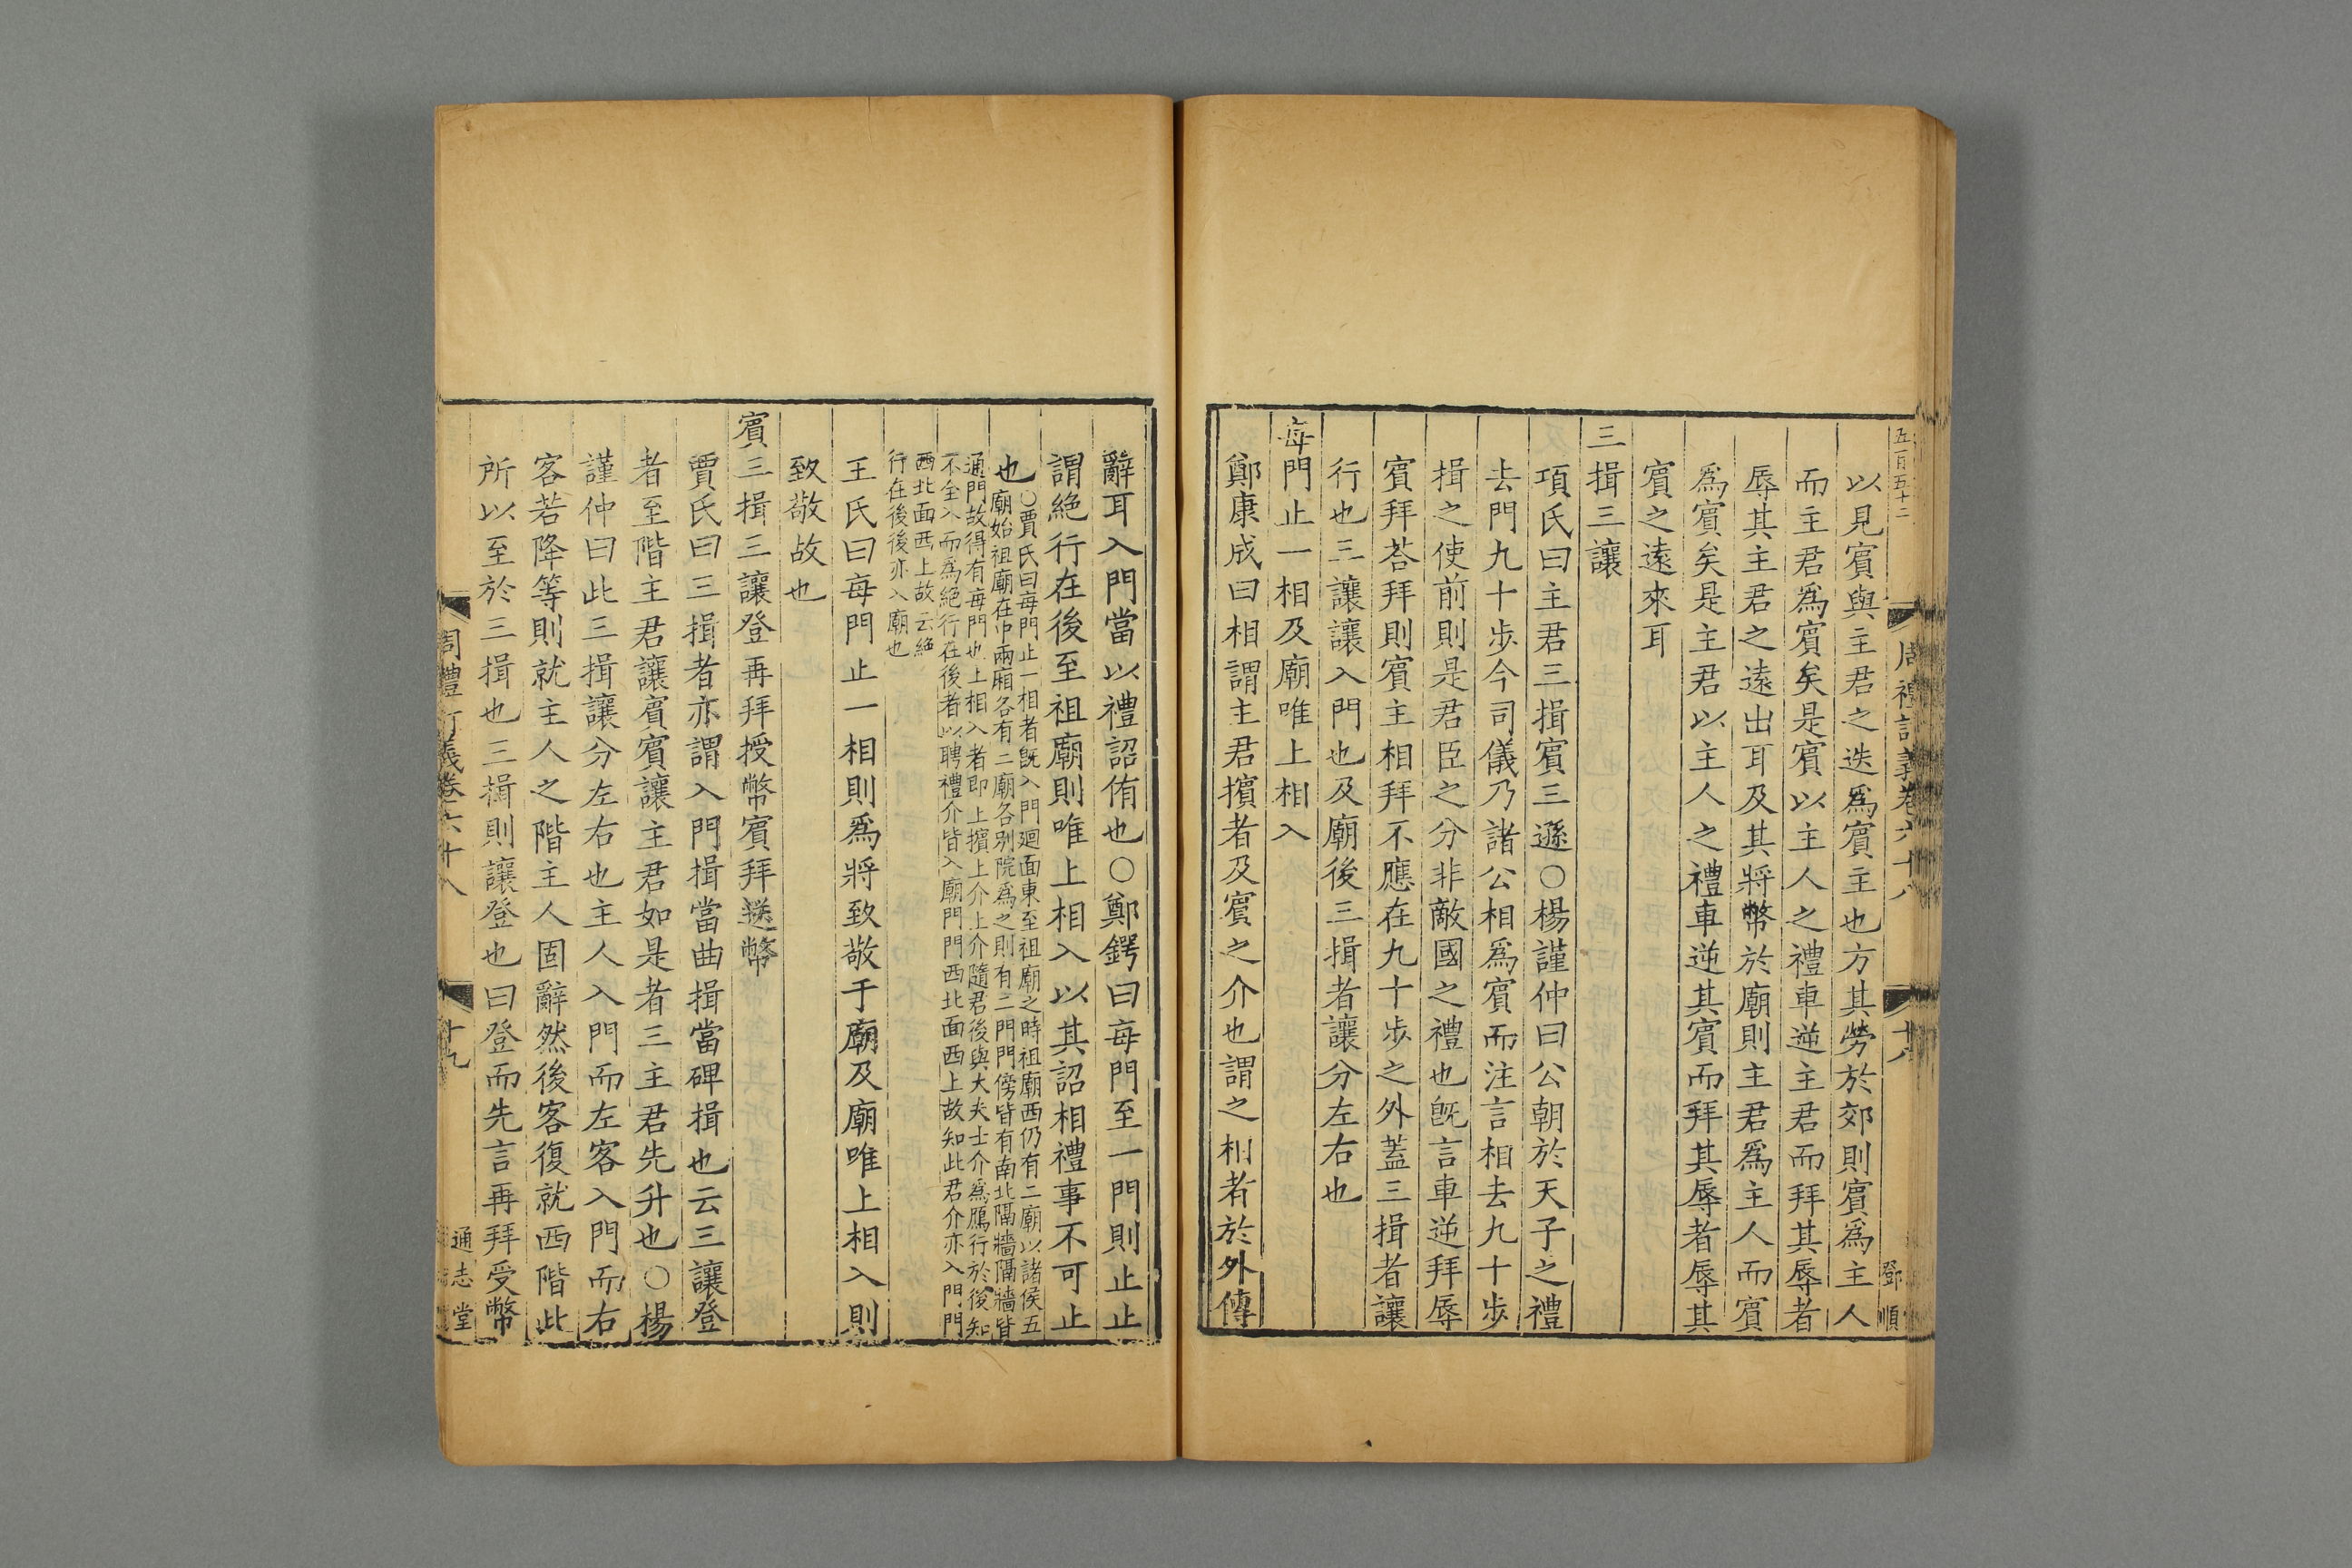 五百五十二
周禮訂義卷六十八
十八
鄧順
以見賓與主君之迭爲賓主也方其勞於郊則賓爲主人
而主君爲賓矣是賓以主人之禮車逆主君而拜其辱者
辱其主君之遠出耳及其將幣於廟則主君爲主人而賓
爲賓矣是主君以主人之禮車逆其賓而拜其辱者辱其
賓之遠來耳
三揖三讓
項氏曰主君三揖賓三遜○楊謹仲曰公朝於天子之禮
去門九十步今司儀乃諸公相爲賓而注言相去九十步
揖之使前則是君臣之分非敵國之禮也旣言車逆拜辱
賓拜荅拜則賓主相拜不應在九十步之外蓋三揖者讓
行也三讓讓入門也及廟後三揖者讓分左右也
每門止一相及廟唯上相入
鄭康成曰相謂主君擯者及賓之介也謂之相者於外傳
辭耳入門當以禮詔侑也○鄭鍔曰每門至一門則止止
謂絕行在後至祖廟則唯上相入以其詔相禮事不可止
也○賈氏曰每門止一相者旣入門廻面東至祖廟之時祖廟西仍有二廟以諸侯五
廟始祖廟在中兩廂各有二廟各別院爲之則有二門門傍皆有南北隔牆隔牆皆
通門故得有每門也上相入者即上擯上介上介隨君後與大夫士介爲鴈行於後知
不全入而爲絕行在後者以聘禮介皆入廟門門西北面西上故知此君介亦入門門
西北面西上故云絕
行在後後亦入廟也
王氏曰每門止一相則爲將致敬于廟及廟唯上相入則
致敬故也
賓三揖三讓登再拜授幣賓拜送幣
賈氏曰三揖者亦謂入門揖當曲揖當碑揖也云三讓登
者至階主君讓賓賓讓主君如是者三主君先升也○楊
謹仲曰此三揖讓分左右也主人入門而左客入門而右
客若降等則就主人之階主人固辭然後客復就西階此
所以至於三揖也三揖則讓登也曰登而先言再拜受幣
周禮訂義卷六十八
十九
通志堂